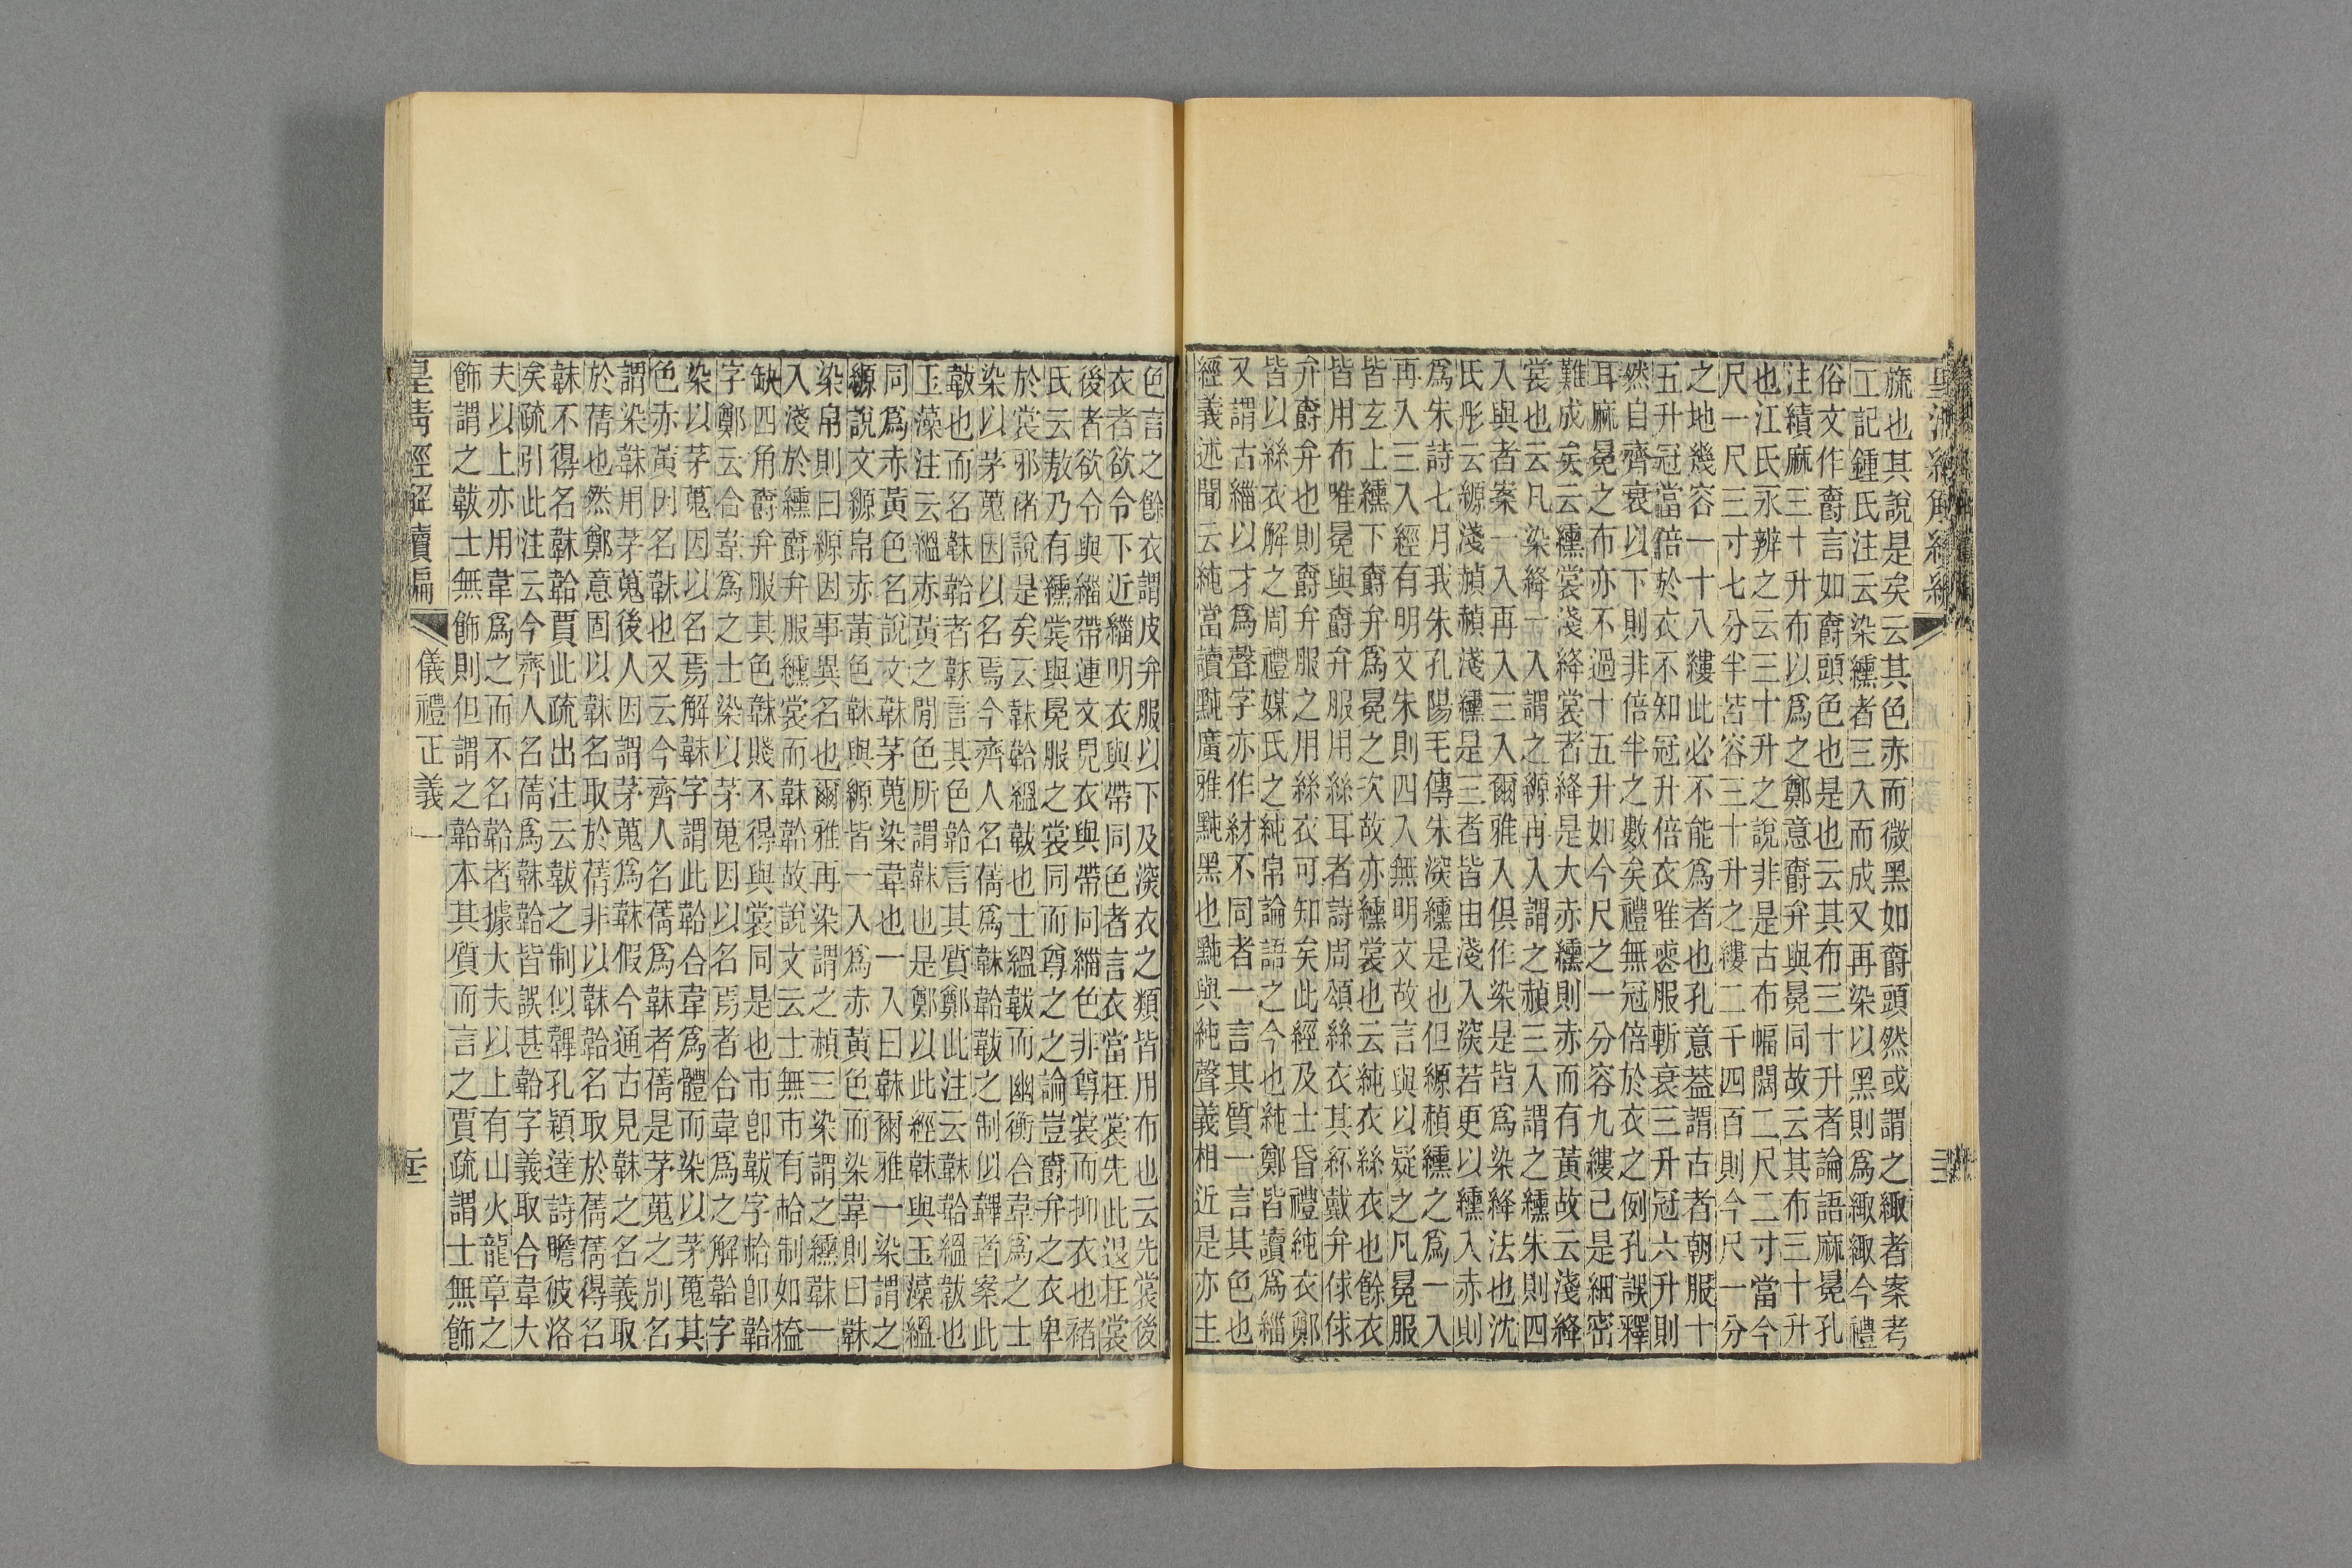 旒也其說是矣云其色赤而微黑如爵頭然或謂之緅者案考
工記鍾氏注云染纁者三入而成又再染以黑則爲緅緅今禮
俗文作爵言如爵頭色也是也云其布三十升者論語麻冕孔
注績麻三十升布以爲之鄭意爵弁與冕同故云其布三十升
也江氏永辨之云三十升之說非是古布幅闊二尺二寸當今
尺一尺三寸七分半若容三十升之縷二千四百則今尺一分
之地幾容一十八縷此必不能爲者也孔意葢謂古者朝服十
五升冠當倍於衣不知冠升倍衣唯喪服斬衰三升冠六升則
然自齊衰以下則非倍半之數矣禮無冠倍於衣之例孔誤釋
耳麻冕之布亦不過十五升如今尺之一分容九縷已是細密
難成矣云纁裳淺絳裳者絳是大赤纁則赤而有黃故云淺絳
裳也云凡染絳一入謂之縓再入謂之赬三入謂之纁朱則四
入與者案一入再入三入爾雅入俱作染是皆爲染絳法也沈
氏彤云縓淺赬赬淺纁是三者皆由淺入深若更以纁入赤則
爲朱詩七月我朱孔陽毛傳朱深纁是也但縓赬纁之爲一入
再入三入經有明文朱則四入無明文故言與以疑之凡冕服
皆玄上纁下爵弁爲冕之次故亦纁裳也云純衣絲衣也餘衣
皆用布唯冕與爵弁服用絲耳者詩周頌絲衣其紑戴弁俅俅
弁爵弁也則爵弁服之用絲衣可知矣此經及士昏禮純衣鄭
皆以絲衣解之周禮媒氏之純帛論語之今也純鄭皆讀爲緇
又謂古緇以才爲聲字亦作紂不同者一言其質一言其色也
經義述聞云純當讀黗廣雅黗黑也黗與純聲義相近是亦主
色言之餘衣謂皮弁服以下及深衣之類皆用布也云先裳後
衣者欲令下近緇明衣與帶同色者言衣當在裳先此退在裳
後者欲令與緇帶連文見衣與帶同緇色非尊裳而抑衣也褚
氏云敖乃有纁裳與冕服之裳同而尊之之論豈爵弁之衣卑
於裳邪褚說是矣云韎韐縕韍也士縕韍而幽衡合韋爲之士
染以茅蒐因以名焉今齊人名蒨爲韎韐韍之制似韠者案此
韍也而名韎韐者韎言其色韐言其質鄭此注云韎韐縕韍也
玉藻注云縕赤黃之閒色所謂韎也是鄭以此經韎與玉藻縕
同爲赤黃色名說文韎茅蒐染韋也一入曰韎爾雅一染謂之
縓說文縓帛赤黃色韎與縓皆一入爲赤黃色而染韋則曰韎
染帛則曰縓因事異名也爾雅再染謂之赬三染謂之纁韎一
入淺於纁爵弁服纁裳而韎韐故說文云士無市有韐制如榼
缺四角爵弁服其色韎賤不得與裳同是也市卽韍字韐卽韐
字鄭云合韋爲之士染以茅蒐因以名焉者合韋爲之解韐字
染以茅蒐因以名焉解韎字謂此韐合韋爲體而染以茅蒐其
色赤黃因名韎也又云今齊人名蒨爲韎者蒨是茅蒐之別名
謂染韎用茅蒐後人因謂茅蒐爲韎假今通古見韎之名義取
於蒨也然鄭意固以韎名取於蒨非以韎韐名取於蒨蒨得名
韎不得名韎韐賈此疏出注云韍之制似韠孔穎達詩瞻彼洛
矣疏引此注云今齊人名蒨爲韎韐皆誤甚韐字義取合韋大
夫以上亦用韋爲之而不名韐者據大夫以上有山火龍章之
飾謂之韍士無飾則但謂之韐本其質而言之賈疏謂士無飾
皇清經解續編
儀禮正義一